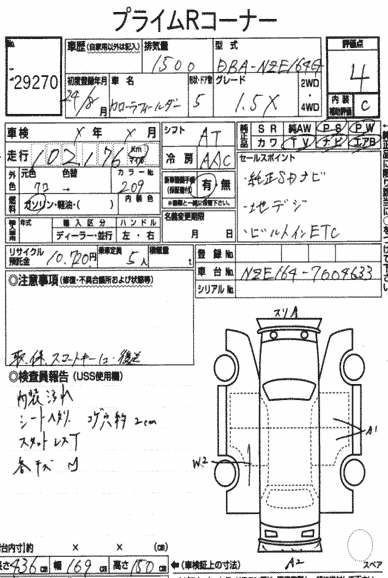 プライムRコーナー
No.
29270
車歴 (自家用以外は記入)
排気量
1500
型式
DBA-NZE164G
評価点
4
初度登録年月
24/8月
車名
カローラフィールダー
ドア
5
グレード
1.5X
2WD
4WD
内装
補助評価
C
車検 × 年 × 月
シフト
AT
純正品
SR 純AW PS PW
カワ TV ナビ エアB
走行 102,176 Km マイル
冷房
AAC
セールスポイント
・純正SDナビ
・地デジ
・ビルトインETC
外色
元色
色替
カラーNo.
209
内装色
(保証書付)
有・無
燃料
ガソリン・軽油・( )
名義変更期限
月 日
年式
輸入区分
ディーラー・並行
ハンドル
左・右
リサイクル預託金
10,700円
乗車定員
5人
積載量
t
登録No.
車台No.
NZE164-7004633
シリアルNo.
◎注意事項 (修復・不具合箇所および状態等)
取・保 スマートキーは後送
◎検査員報告 (USS使用欄)
内装汚れ
コゲ穴 約2cm
スリA
A1
W2
A2
スペア
台内寸)約 × × (cm)
長さ 436 cm 幅 169 cm 高さ 150 cm
←(車検証上の寸法)